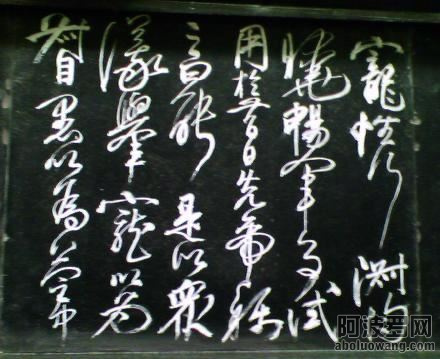 寵性行淑均
曉暢軍事試
用於昔日先帝稱
之曰能是以衆
議舉寵以為
督愚以為營中
阿波罗网
aboluowang.com